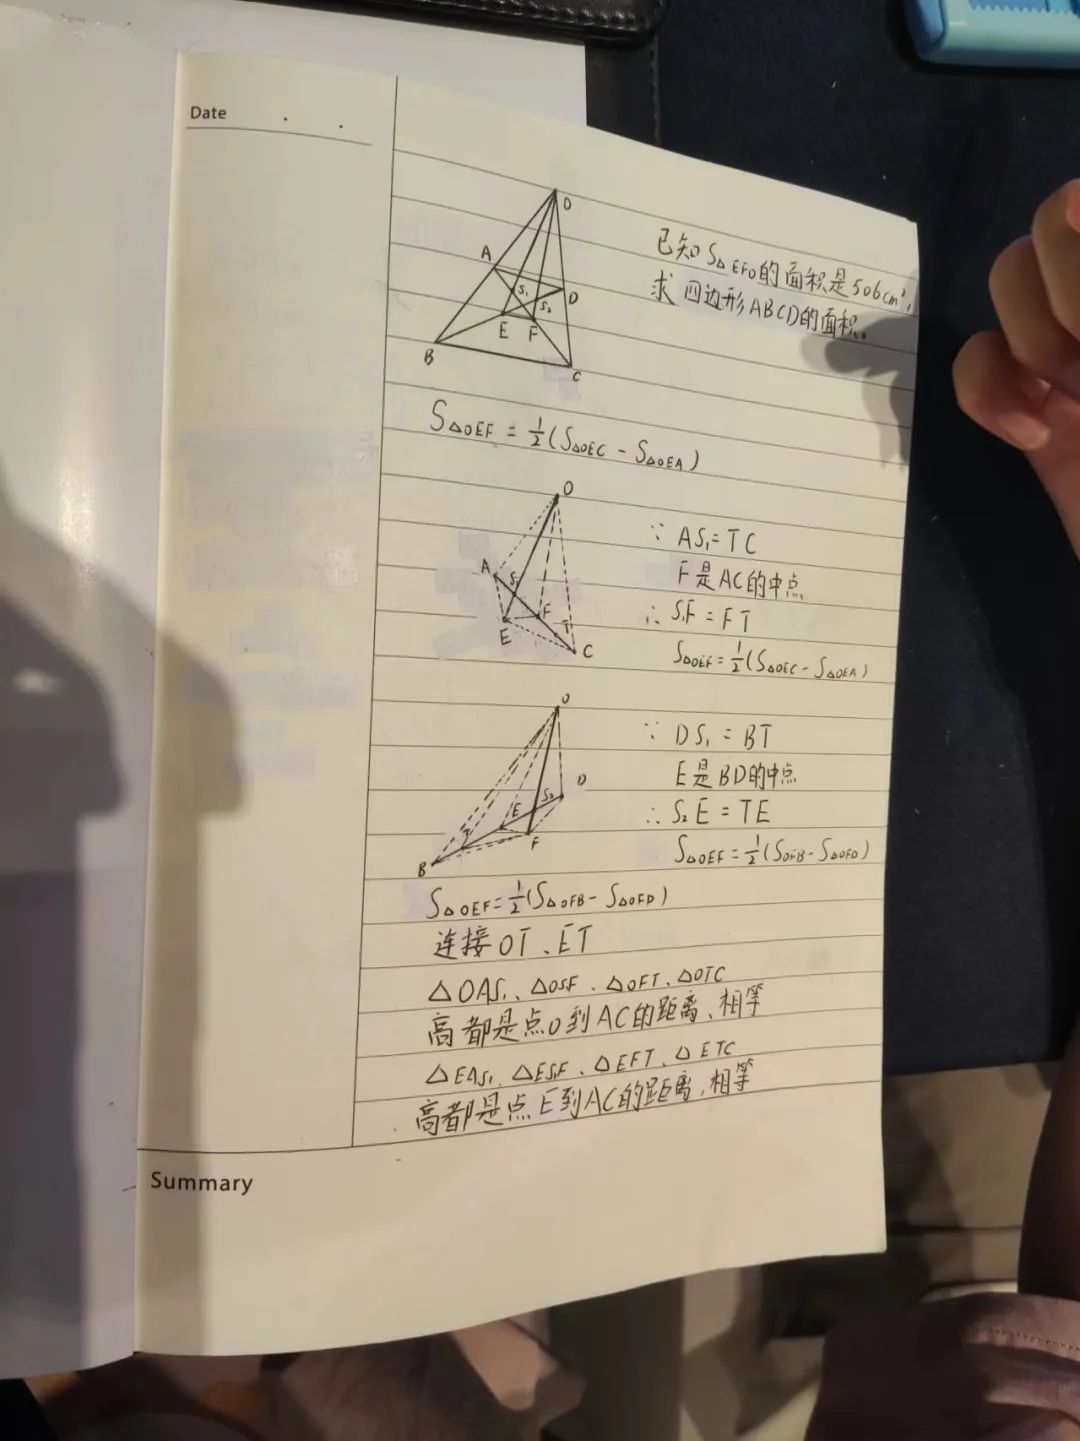 Date
O
A
S₁
D
S₂
E
F
B
C
已知S△EFO的面积是506cm²,
求四边形ABCD的面积。
S△OEF = 1/2(S△OEC - S△OEA)
O
A
S₁
F
T
E
C
∵ AS₁=TC
F是AC的中点
∴ S₁F = FT
S△OEF = 1/2(S△OEC - S△OEA)
O
D
S₂
E
T
F
B
∵ DS₁ = BT
E是BD的中点
∴ S₂E = TE
S△OEF = 1/2(SOFB - S△OFD)
S△OEF = 1/2(S△OFB - S△OFD)
连接OT、ET
△OAS₁、△OSF、△OFT、△OTC
高都是点O到AC的距离、相等
△EAS₁、△ESF、△EFT、△ETC
高都是点E到AC的距离,相等
Summary